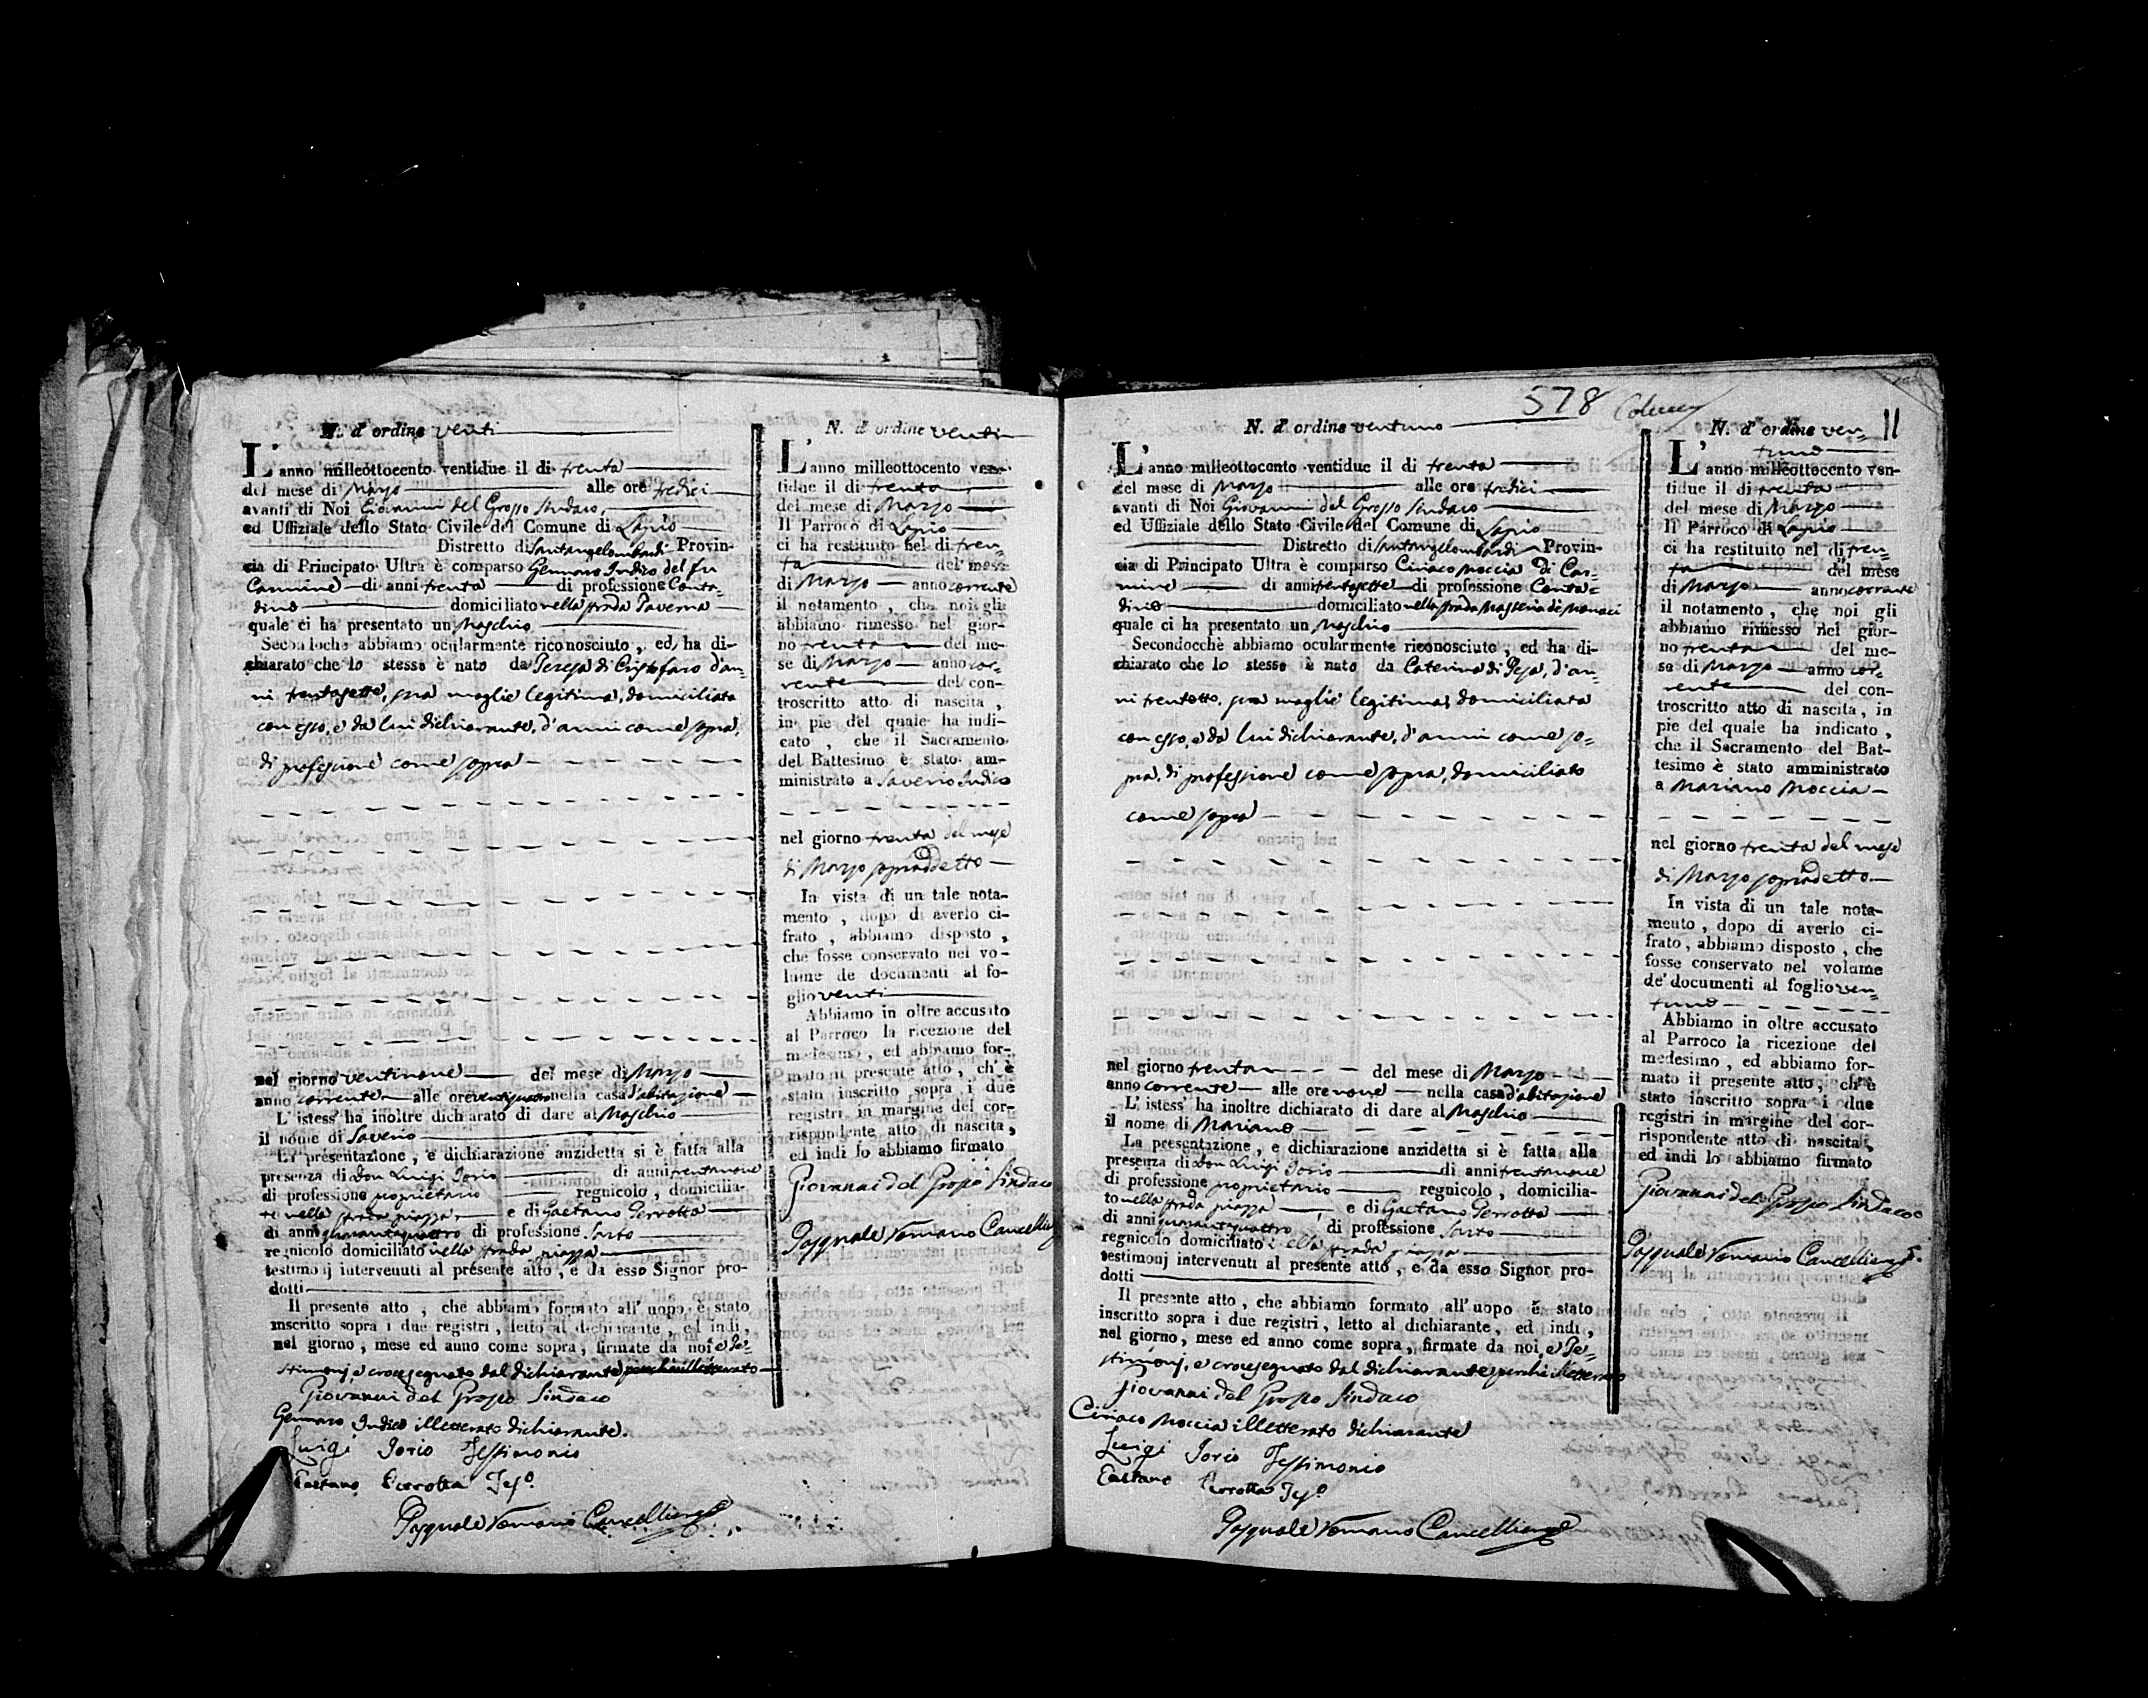 N. d' ordine venti
L' anno milleottocento ventidue il di trenta
del mese di Marzo alle ore tredici
avanti di Noi Giovanni del Grosso Sindaco,
ed Uffiziale dello Stato Civile del Comune di Lapio
Distretto di Santangelombardi Provin-
cia di Principato Ultra è comparso Gennaro Indico del fu
Carmine di anni trenta di professione Conta-
dino domiciliato nella strada Taverna
quale ci ha presentato un Maschio
Secondochè abbiamo ocularmente riconosciuto, ed ha di-
chiarato che lo stesso è nato da Teresa di Cristofaro d'an-
ni trentasette, sua moglie legitima, domiciliata
con esso, e da lui dichiarante, d'anni come sopra,
di professione come sopra
nel giorno ventinove del mese di Marzo
anno corrente alle ore ventiquattro nella casa d'abitazione
L' istess' ha inoltre dichiarato di dare al Maschio
il nome di Saverio
La presentazione, e dichiarazione anzidetta si è fatta alla
presenza di Don Luigi Iorio di anni trentanove
di professione proprietario regnicolo, domicilia-
to nella strada piazza e di Gaetano Perrotta
di anni quarantaquattro di professione Sarto
regnicolo domiciliato nella strada piazza
testimonj intervenuti al presente atto, e da esso Signor pro-
dotti
Il presente atto, che abbiamo formato all' uopo, è stato
inscritto sopra i due registri, letto al dichiarante, ed indi,
nel giorno, mese ed anno come sopra, firmate da noi e Te-
stimonj, e crocesegnato dal dichiarante perchè illetterato
Giovanni del Grosso Sindaco
Gennaro Indico illetterato dichiarante.
Luigi Iorio Testimonio
Gaetano Perrotta Tes.º
Pasquale Romano Cancelliere
N. d' ordine venti
L' anno milleottocento ven-
tidue il di trenta
del mese di Marzo
Il Parroco di Lapio
ci ha restituito nel di tren-
ta del mese
di Marzo anno corrente
il notamento, che noi gli
abbiamo rimesso nel gior-
no trenta del me-
se di Marzo anno cor-
rente del con-
troscritto atto di nascita,
in pie del quale ha indi-
cato, che il Sacramento
del Battesimo è stato am-
ministrato a Saverio Indico
nel giorno trenta del mese
di Marzo sopraddetto
In vista di un tale nota-
mento, dopo di averlo ci-
frato, abbiamo disposto,
che fosse conservato nel vo-
lume de documenti al fo-
glio venti
Abbiamo in oltre accusato
al Parroco la ricezione del
medesimo, ed abbiamo for-
mato il presente atto, ch' è
stato inscritto sopra i due
registri in margine del cor-
rispondente atto di nascita,
ed indi lo abbiamo firmato
Giovanni del Grosso Sindaco
Pasquale Romano Cancelliere
578
11
N. d' ordine ventuno
L' anno milleottocento ventidue il di trenta
del mese di Marzo alle ore tredici
avanti di Noi Giovanni del Grosso Sindaco
ed Uffiziale dello Stato Civile del Comune di Lapio
Distretto di Santangelombardi Provin-
cia di Principato Ultra è comparso Ciriaco Moccia di Car-
mine di anni trentasette di professione Conta-
dino domiciliato nella strada Masseria de Monaci
quale ci ha presentato un Maschio
Secondocchè abbiamo ocularmente riconosciuto, ed ha di-
chiarato che lo stesso è nato da Caterina di Pesa, d'an-
ni trentotto, sua moglie legitima, domiciliata
con esso, e da lui dichiarante, d'anni come so-
pra, di professione come sopra, domiciliato
come sopra
nel giorno trenta del mese di Marzo
anno corrente alle ore nove nella casa d'abitazione
L' istess' ha inoltre dichiarato di dare al Maschio
il nome di Mariano
La presentazione, e dichiarazione anzidetta si è fatta alla
presenza di Don Luigi Iorio di anni trentanove
di professione proprietario regnicolo, domicilia-
to nella strada piazza, e di Gaetano Perrotta
di anni quarantaquattro, di professione Sarto
regnicolo domiciliato nella strada piazza
testimonj intervenuti al presente atto, e da esso Signor pro-
dotti
Il presente atto, che abbiamo formato all' uopo è stato
inscritto sopra i due registri, letto al dichiarante, ed indi,
nel giorno, mese ed anno come sopra, firmate da noi, e Te-
stimonj, e crocesegnato dal dichiarante perchè illetterato
Giovanni del Grosso Sindaco
Ciriaco Moccia illetterato dichiarante
Luigi Iorio Testimonio
Gaetano Perrotta Tes.º
Pasquale Romano Cancelliere
N. d' ordine ven-
tuno
L' anno milleottocento ven-
tidue il di trenta
del mese di Marzo
Il Parroco di Lapio
ci ha restituito nel di tren-
ta del mese
di Marzo anno corrente
il notamento, che noi gli
abbiamo rimesso nel gior-
no trenta del me-
se di Marzo anno cor-
rente del con-
troscritto atto di nascita, in
pie del quale ha indicato,
che il Sacramento del Bat-
tesimo è stato amministrato
a Mariano Moccia
nel giorno trenta del mese
di Marzo sopradetto
In vista di un tale nota-
mento, dopo di averlo ci-
frato, abbiamo disposto, che
fosse conservato nel volume
de' documenti al foglio ven-
tuno
Abbiamo in oltre accusato
al Parroco la ricezione del
medesimo, ed abbiamo for-
mato il presente atto, ch' è
stato inscritto sopra i due
registri in margine del cor-
rispondente atto di nascita,
ed indi lo abbiamo firmato
Giovanni del Grosso Sindaco
Pasquale Romano Cancelliere